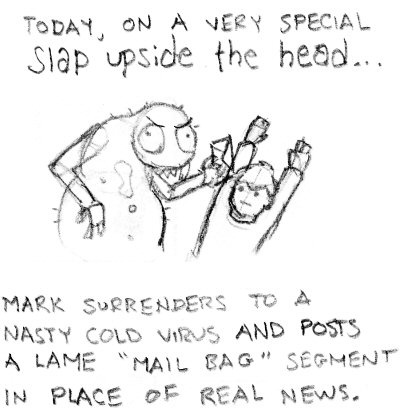 TODAY, ON A VERY SPECIAL
Slap upside the head...
MARK SURRENDERS TO A
NASTY COLD VIRUS AND POSTS
A LAME "MAIL BAG" SEGMENT
IN PLACE OF REAL NEWS.